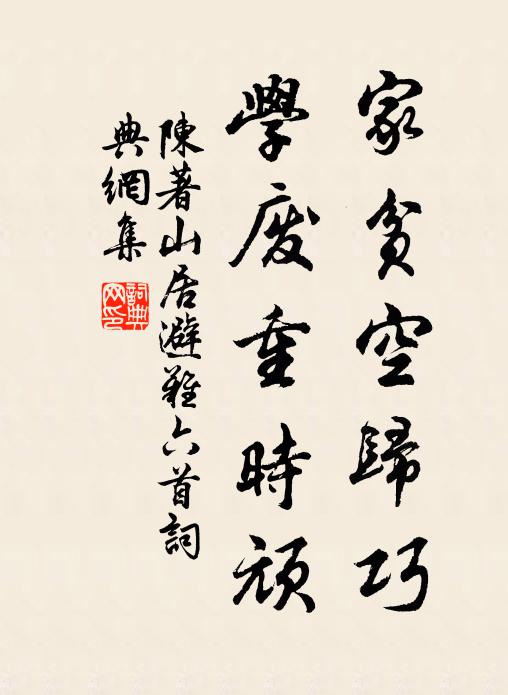 家貧空歸巧
學廢重時頑
陳著山居避難六首詞
典網集
詞典網印